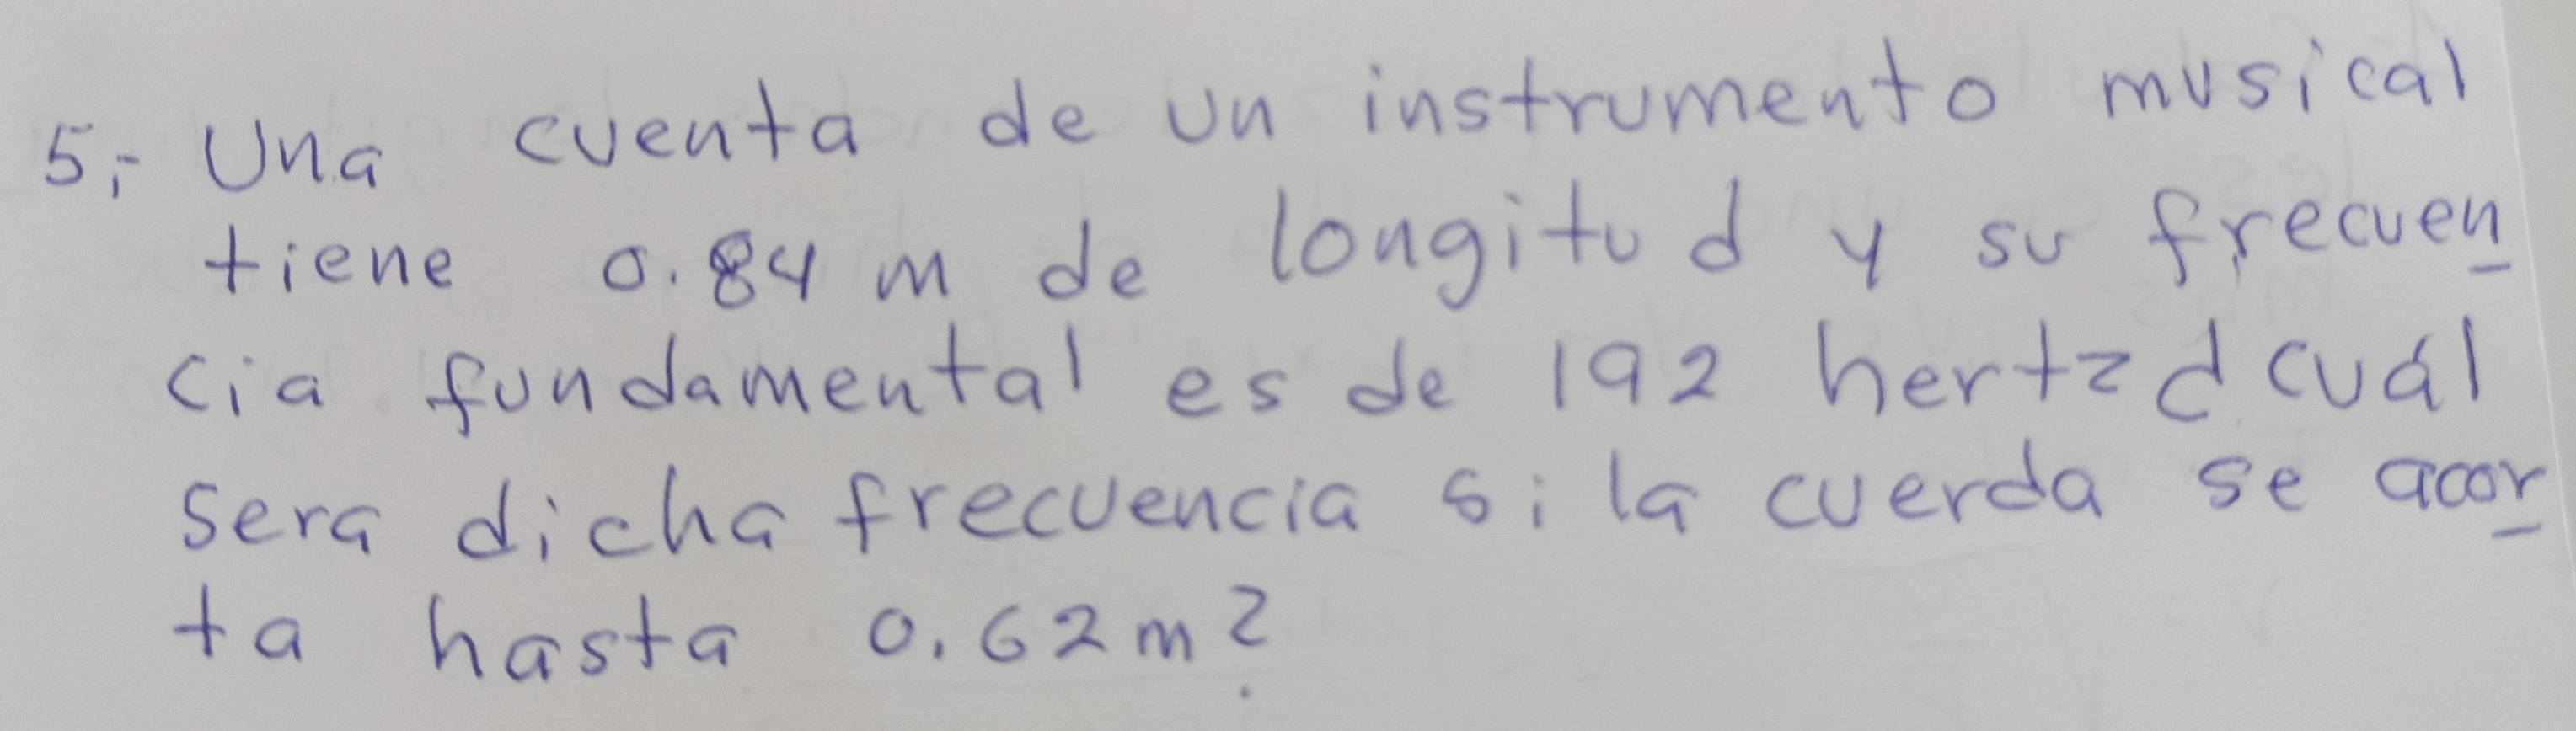 5.- Una cuenta de un instrumento musical
tiene 0.84 m de longitud y su frecuen
cia fundamental es de 192 hertz ¿ cuál
sera dicha frecuencia si la cuerda se acor
ta hasta 0.62 m ?